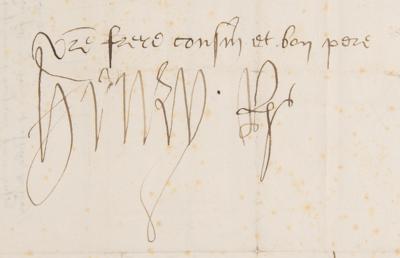 Vre frere cousin et bon pere
Henry R